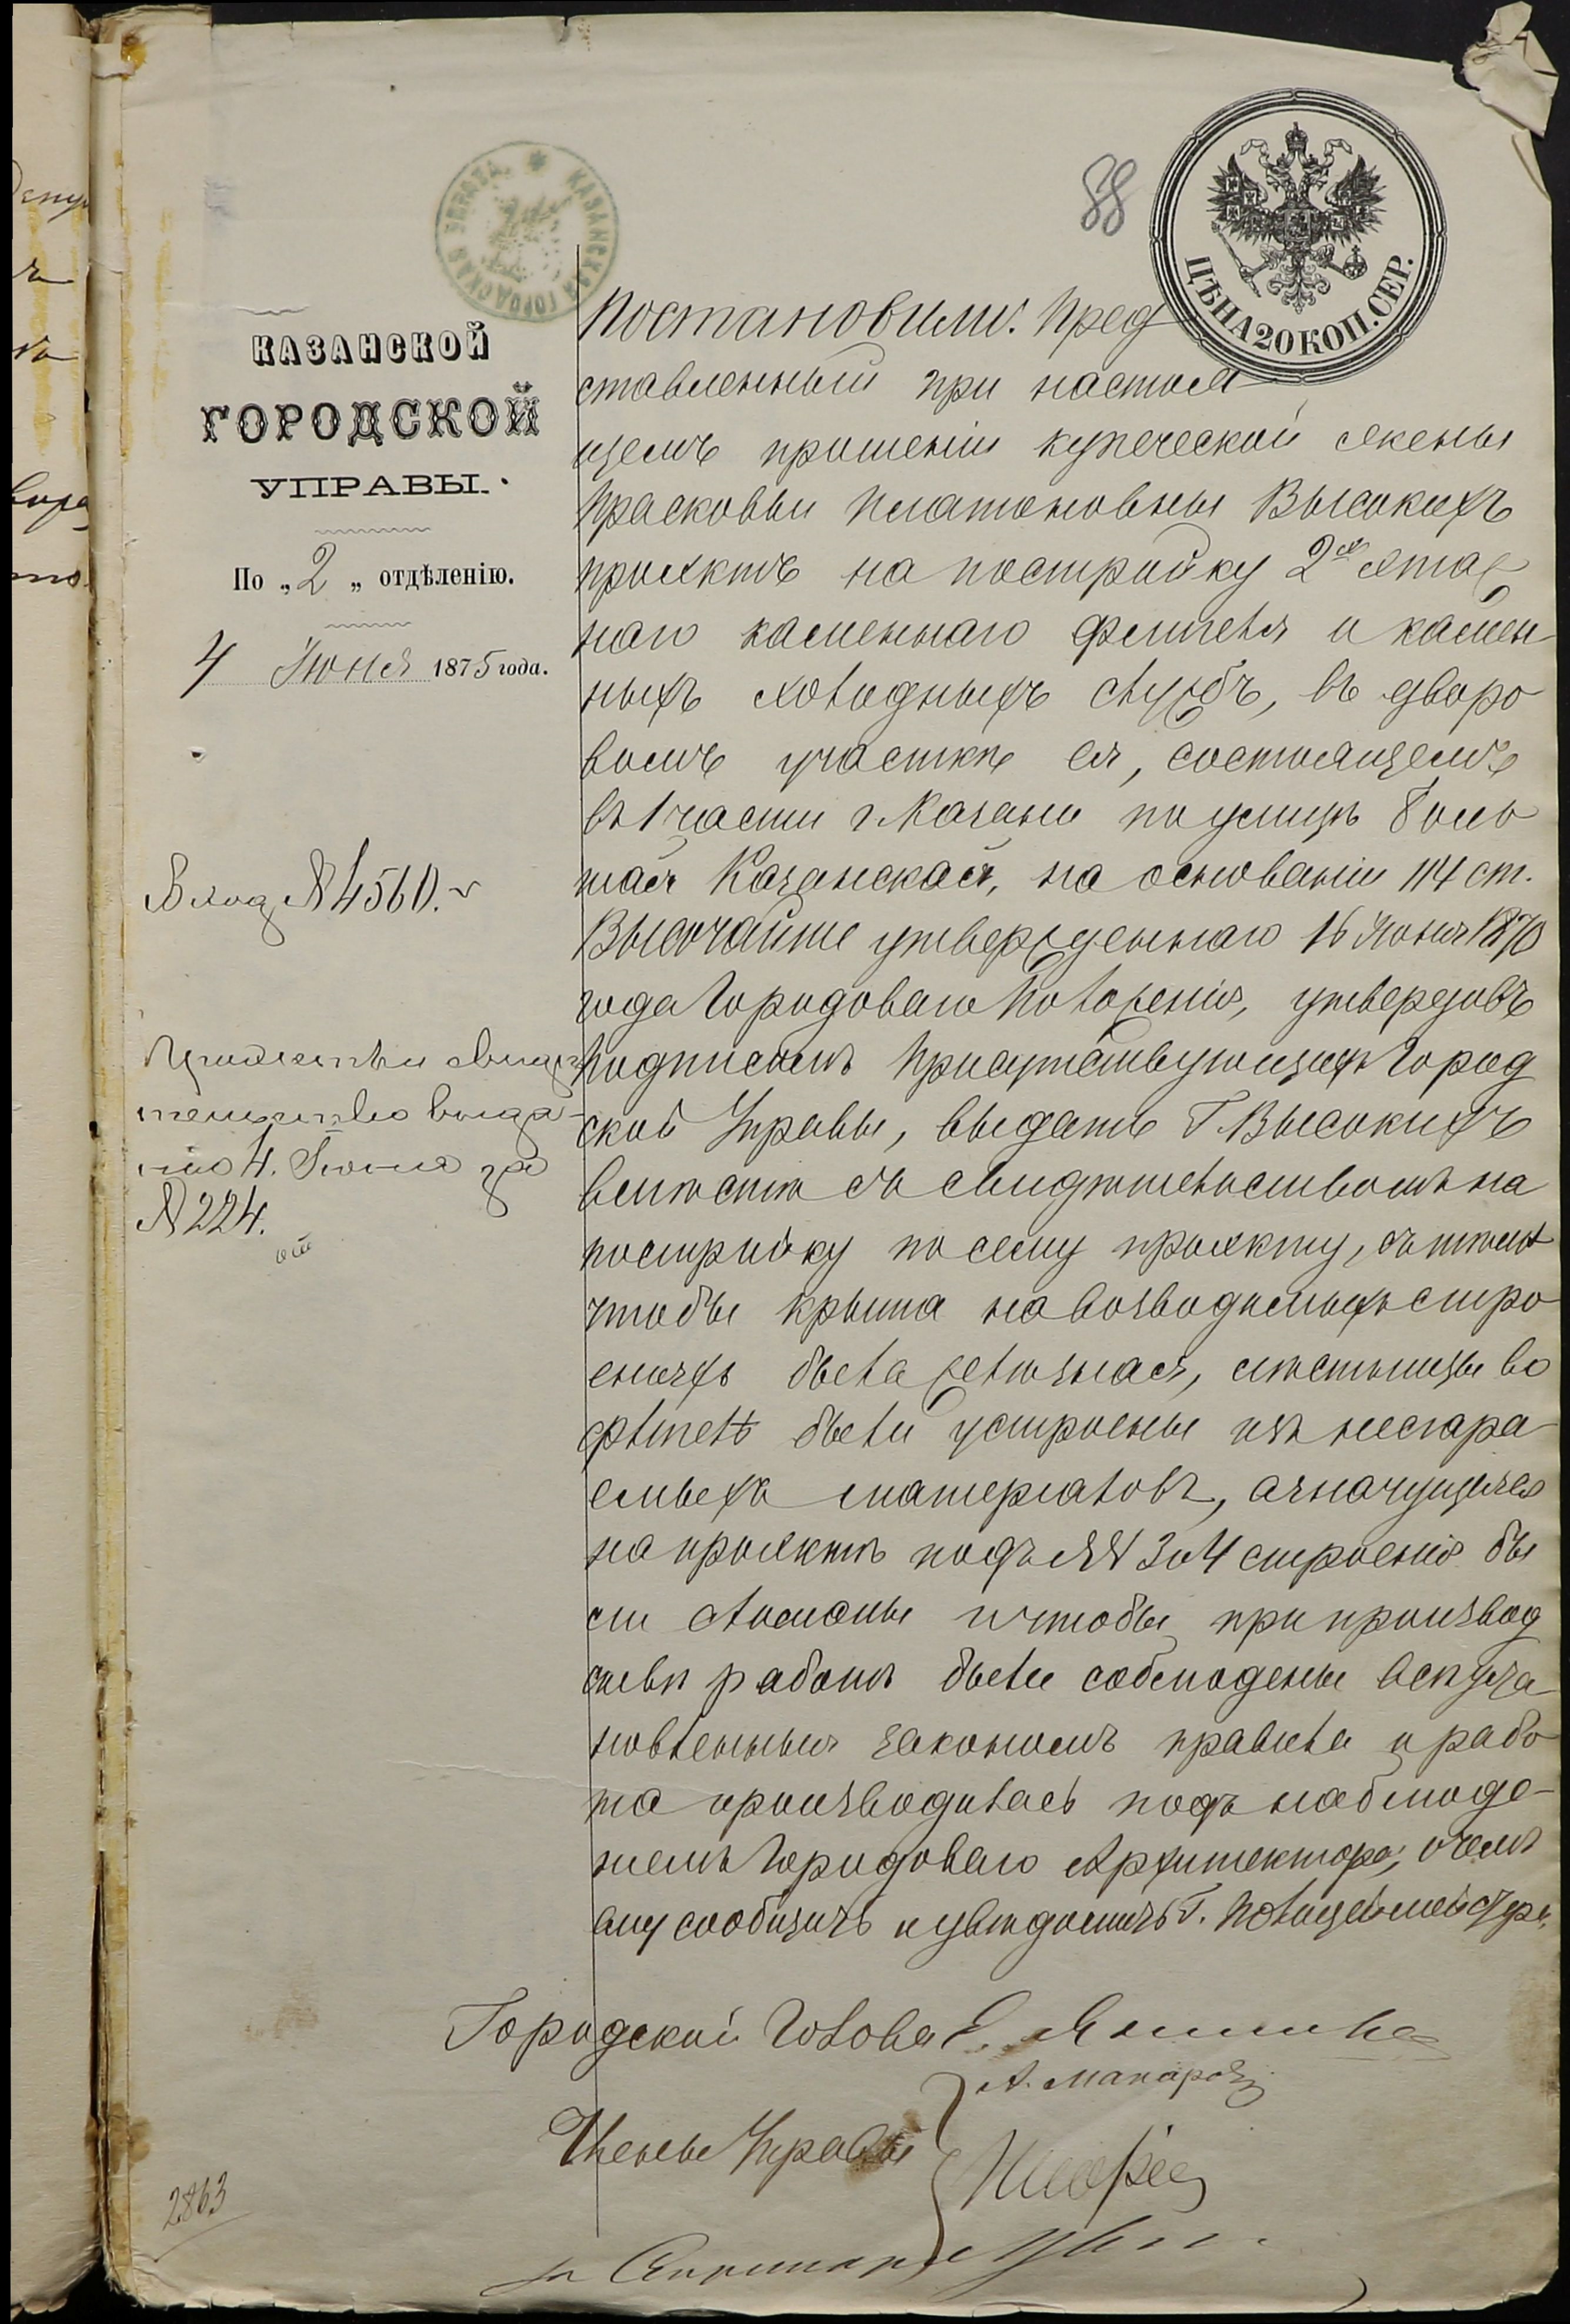 88
ЦѢНА 20 КОП. СЕР.
КАЗАНСКАЯ ГОРОДСКАЯ УПРАВА
КАЗАНСКОЙ
ГОРОДСКОЙ
УПРАВЫ.
По „2„ отдѣленію.
4 Іюня 1875 года.
Вход № 4560.
Проэктъ и свидѣ
тельство выда
но 4. Іюня за
№ 224.
Постановили: Пред
ставленный при настоя
щемъ прошеніи купеческой жены
Прасковьи Платоновны Высокихъ
проэктъ на постройку 2х этаж
наго каменнаго флигеля и камен
ныхъ холодныхъ службъ, въ дворо
вомъ участкѣ ея, состоящемъ
въ 1 части г. Казани по улицѣ Боль
шая Казанская, на основаніи 114 ст.
Высочайше утвержденнаго 16 Іюня 1870
года Городоваго Положенія, утвердивъ
подписомъ Присутствующихъ Город
ской Управы, выдать Г. Высокихъ
вмѣстѣ съ свидѣтельствомъ на
постройку по сему проэкту, съ тѣмъ
чтобы крыша на возводимыхъ стро
еніяхъ была желѣзная, лѣстницы во
флигелѣ были устроены изъ несгара
емыхъ матеріаловъ, а значущіяся
на проэктѣ подъ №№ 3 и 4 строенія бы
ли сломаны и чтобы при производ
ствѣ работъ были соблюдены всѣ уста
новленныя закономъ правила и рабо
та производилась подъ наблюде-
ніемъ Городоваго Архитектора, о чемъ
ему сообщить и увѣдомить Г. Полицеймейстера.
Городской Голова Е.
А. Макаровъ
Члены Управы
Секретарь
2863